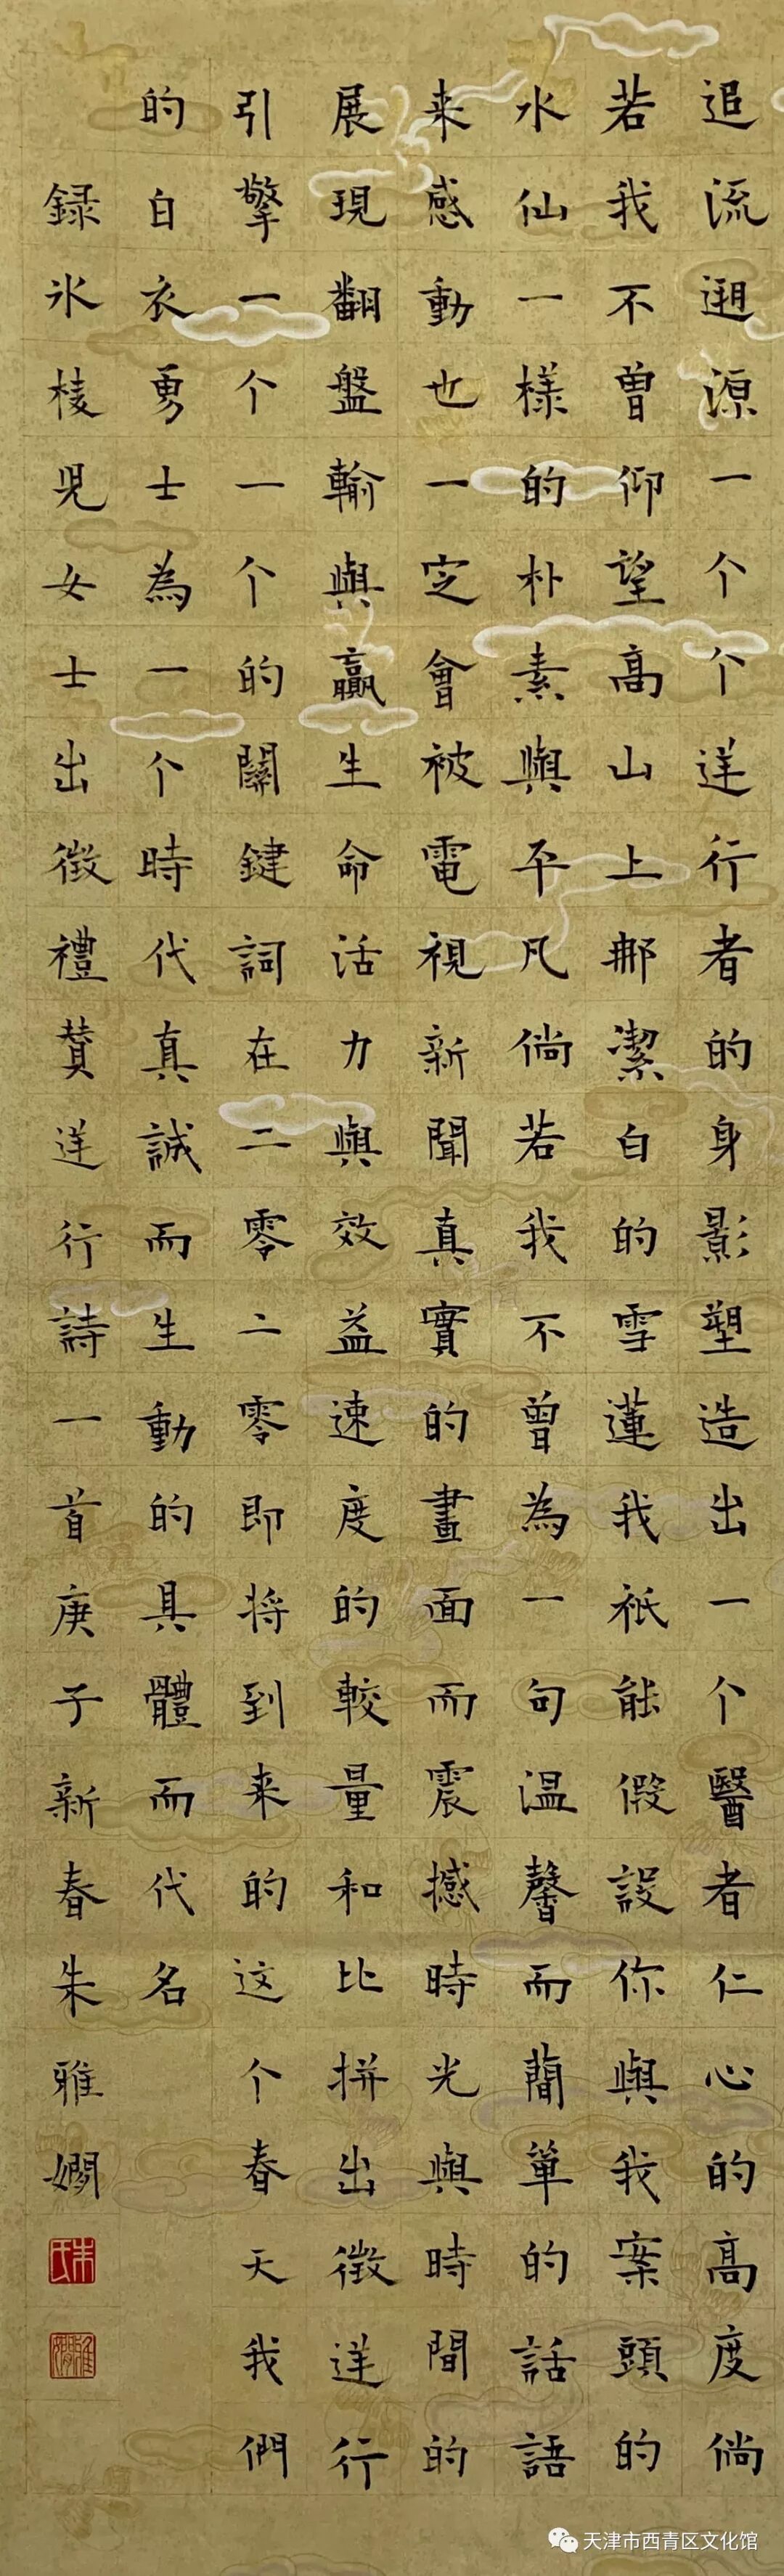 追流遡源一个个逆行者的身影塑造出一个醫者仁心的高度倘
若我不曾仰望高山上那潔白的雪蓮我祇能假設你與我案頭的
水仙一樣的朴素與平凡倘若我不曾為一句温馨而簡單的話語
来感動也一定會被電視新聞真實的畫面而震撼時光與時間的
展現翻盤輸與贏生命活力與效益速度的較量和比拼出徵逆行
引擎一个一个的關鍵詞在二零二零即将到来的这个春天我們
的白衣勇士為一个時代真誠而生動的具體而代名
録氷棱児女士出徵禮賛逆行詩一首庚子新春朱雅嫻
朱氏
雅嫻
天津市西青区文化馆